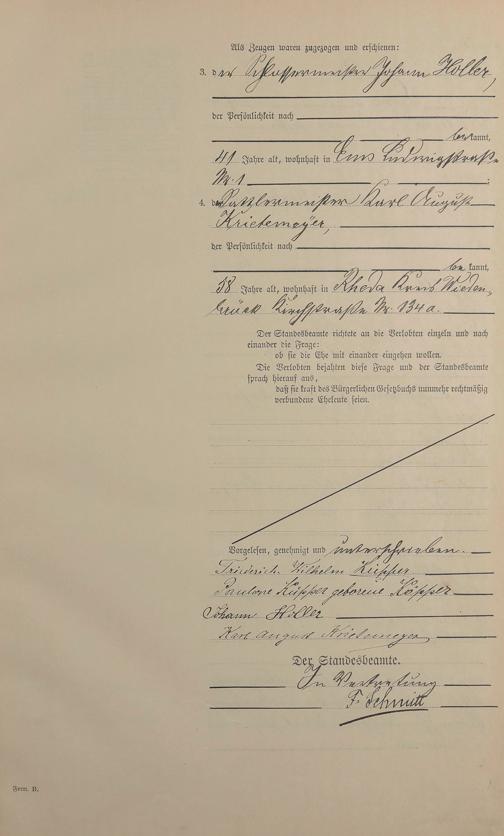 Als Zeugen waren zugezogen und erschienen:
3. der Schlossermeister Johann Holler,
der Persönlichkeit nach
bekannt,
41 Jahre alt, wohnhaft in Ems Ludwigstraße
Nr. 1 ;
4. der Sattlermeister Karl August
Krietemeyer,
der Persönlichkeit nach
bekannt,
58 Jahre alt, wohnhaft in Rheda Kreis Wieden-
brück Kirchstraße Nr. 134a.
Der Standesbeamte richtete an die Verlobten einzeln und nach
einander die Frage:
ob sie die Ehe mit einander eingehen wollen.
Die Verlobten bejahten diese Frage und der Standesbeamte
sprach hierauf aus,
daß sie kraft des Bürgerlichen Gesetzbuchs nunmehr rechtmäßig
verbundene Eheleute seien.
Vorgelesen, genehmigt und unterschrieben.
Friederich Wilhelm Küpper
Küpper geborene
Johann Holler
Karl August Krietemeyer
Der Standesbeamte.
In Vertretung
F. Schmitt
Form. B.